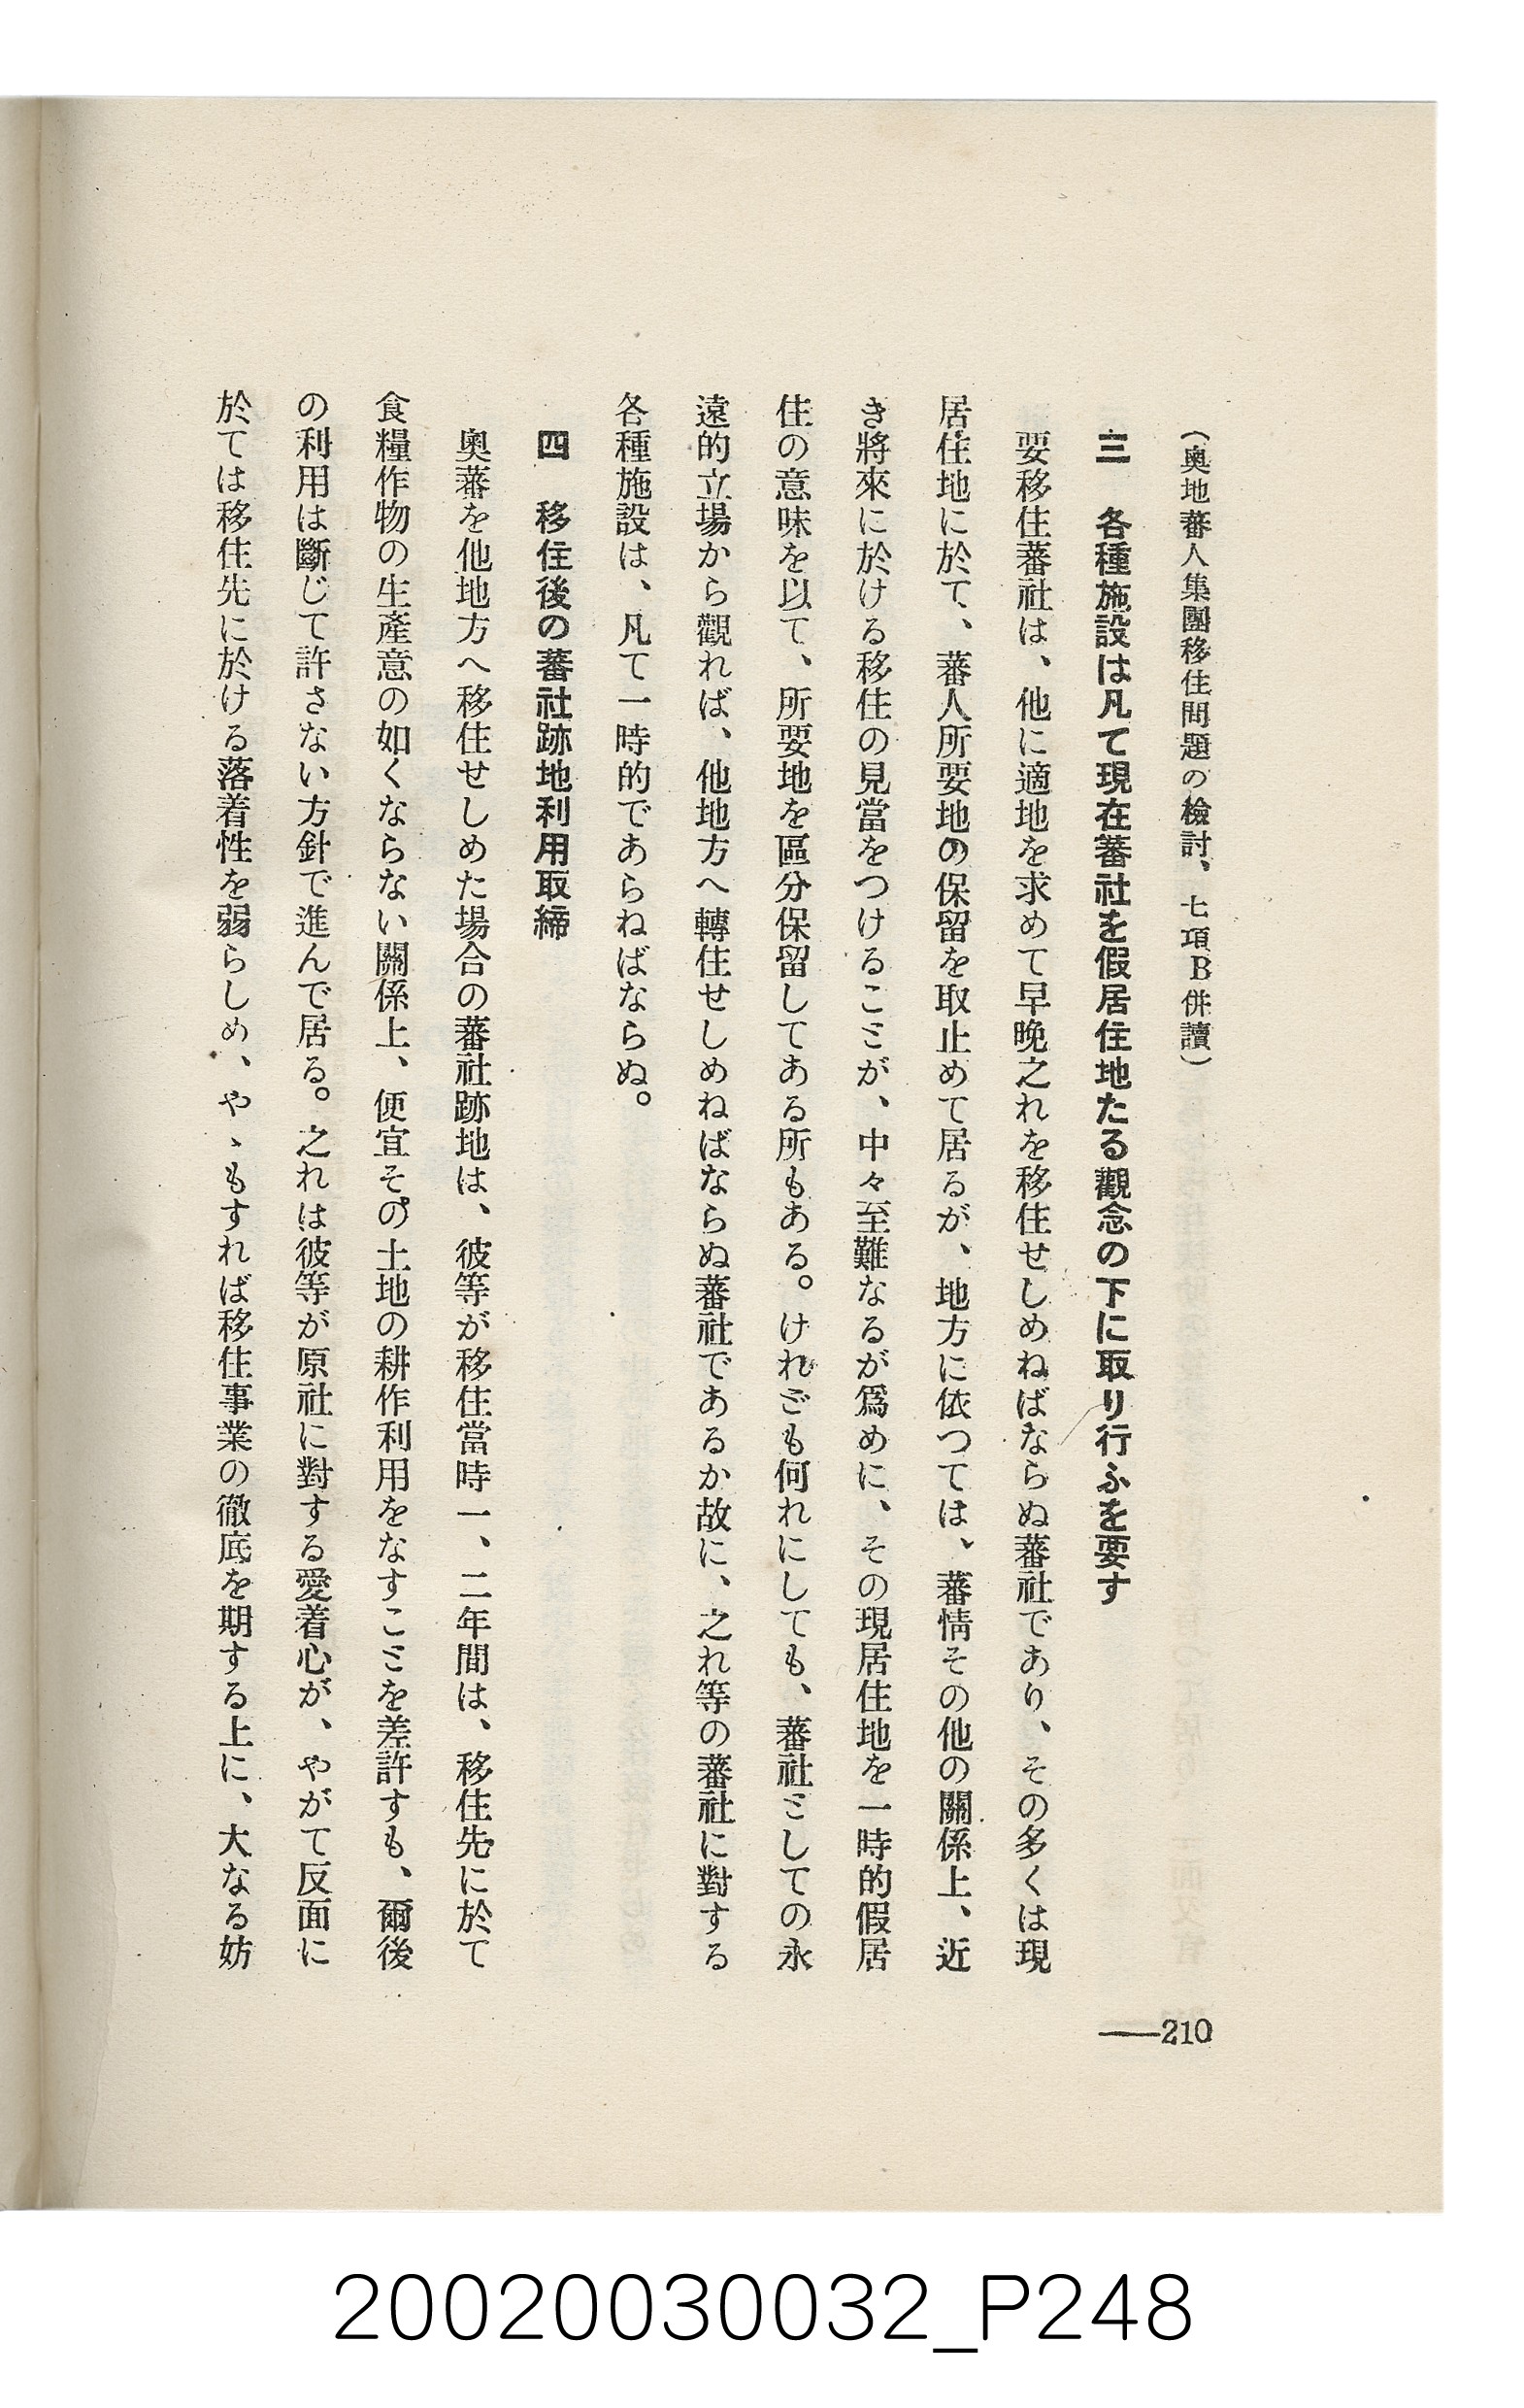 （奧地蕃人集團移住問題の檢討、七項Ｂ併讀）
三　各種施設は凡て現在蕃社を假居住地たる觀念の下に取り行ふを要す
要移住蕃社は、他に適地を求めて早晩之れを移住せしめねばならぬ蕃社であり、その多くは現
居住地に於て、蕃人所要地の保留を取止めて居るが、地方に依つては、蕃情その他の關係上、近
き將來に於ける移住の見當をつけることが、中々至難なるが爲めに、その現居住地を一時的假居
住の意味を以て、所要地を區分保留してある所もある。けれども何れにしても、蕃社としての永
遠的立場から觀れば、他地方へ轉住せしめねばならぬ蕃社であるか故に、之れ等の蕃社に對する
各種施設は、凡て一時的であらねばならぬ。
四　移住後の蕃社跡地利用取締
奧蕃を他地方へ移住せしめた場合の蕃社跡地は、彼等が移住當時一、二年間は、移住先に於て
食糧作物の生產意の如くならない關係上、便宜その土地の耕作利用をなすことを差許すも、爾後
の利用は斷じて許さない方針で進んで居る。之れは彼等が原社に對する愛着心が、やがて反面に
於ては移住先に於ける落着性を弱らしめ、やゝもすれば移住事業の徹底を期する上に、大なる妨
——210
20020030032_P248